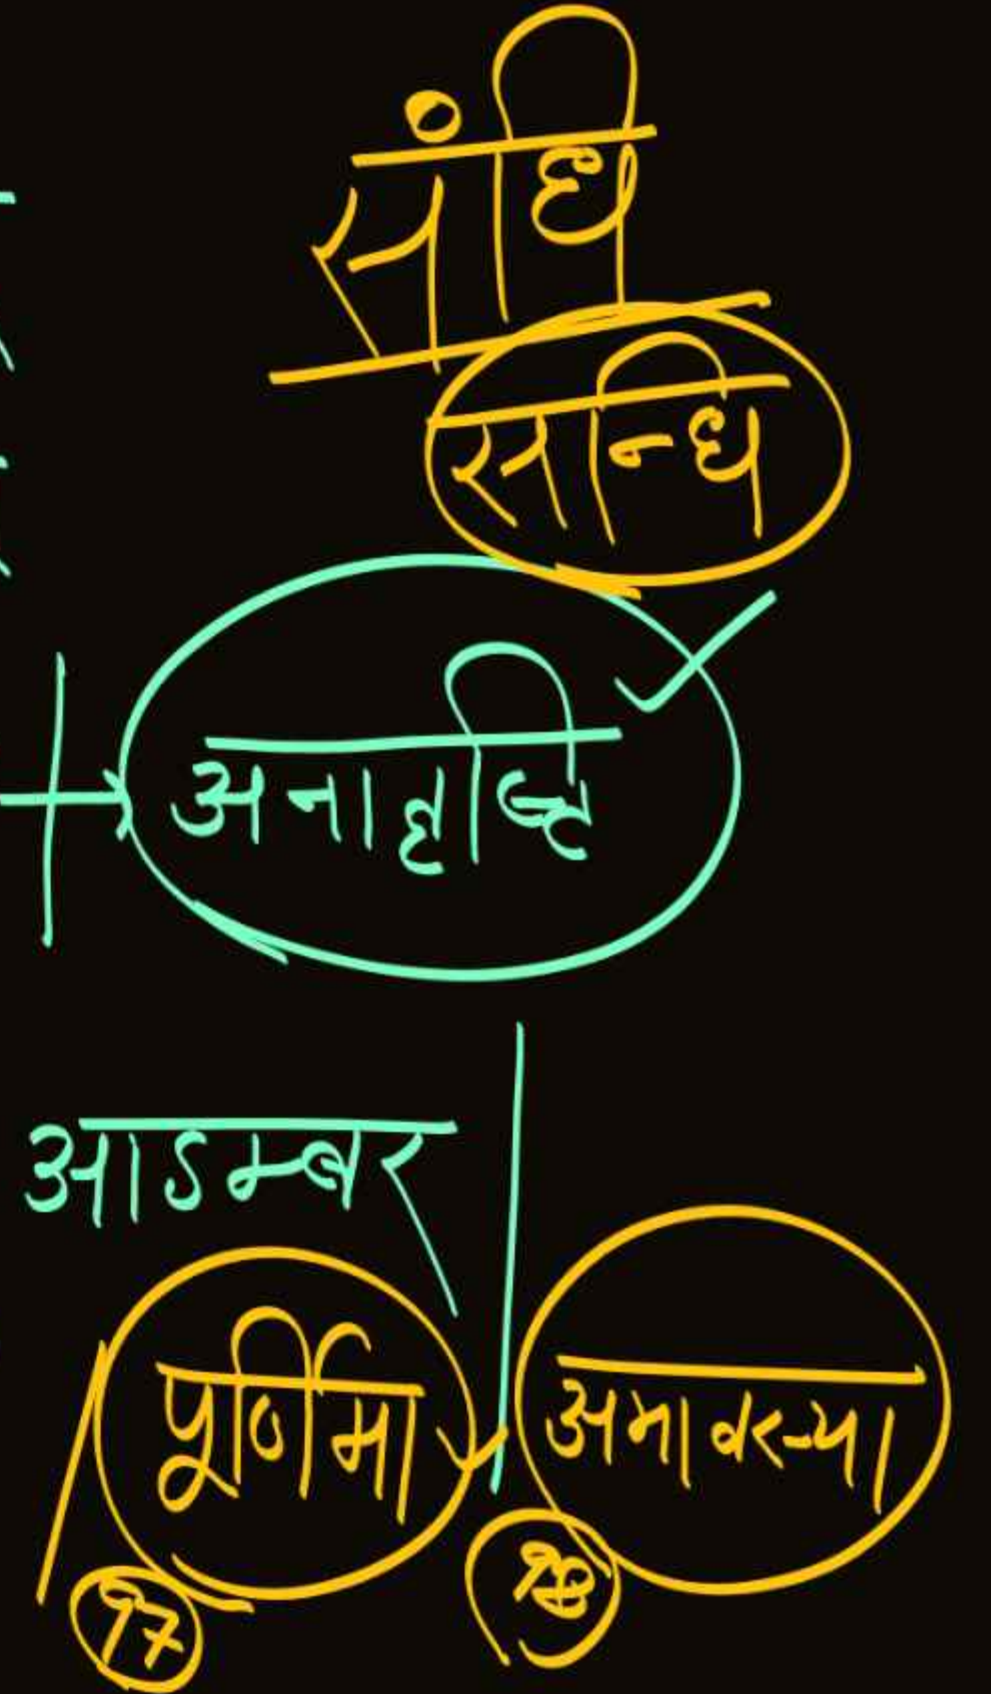 संधि
सन्धि
अनावृष्टि
आडम्बर
पूर्णिमा अमावस्या